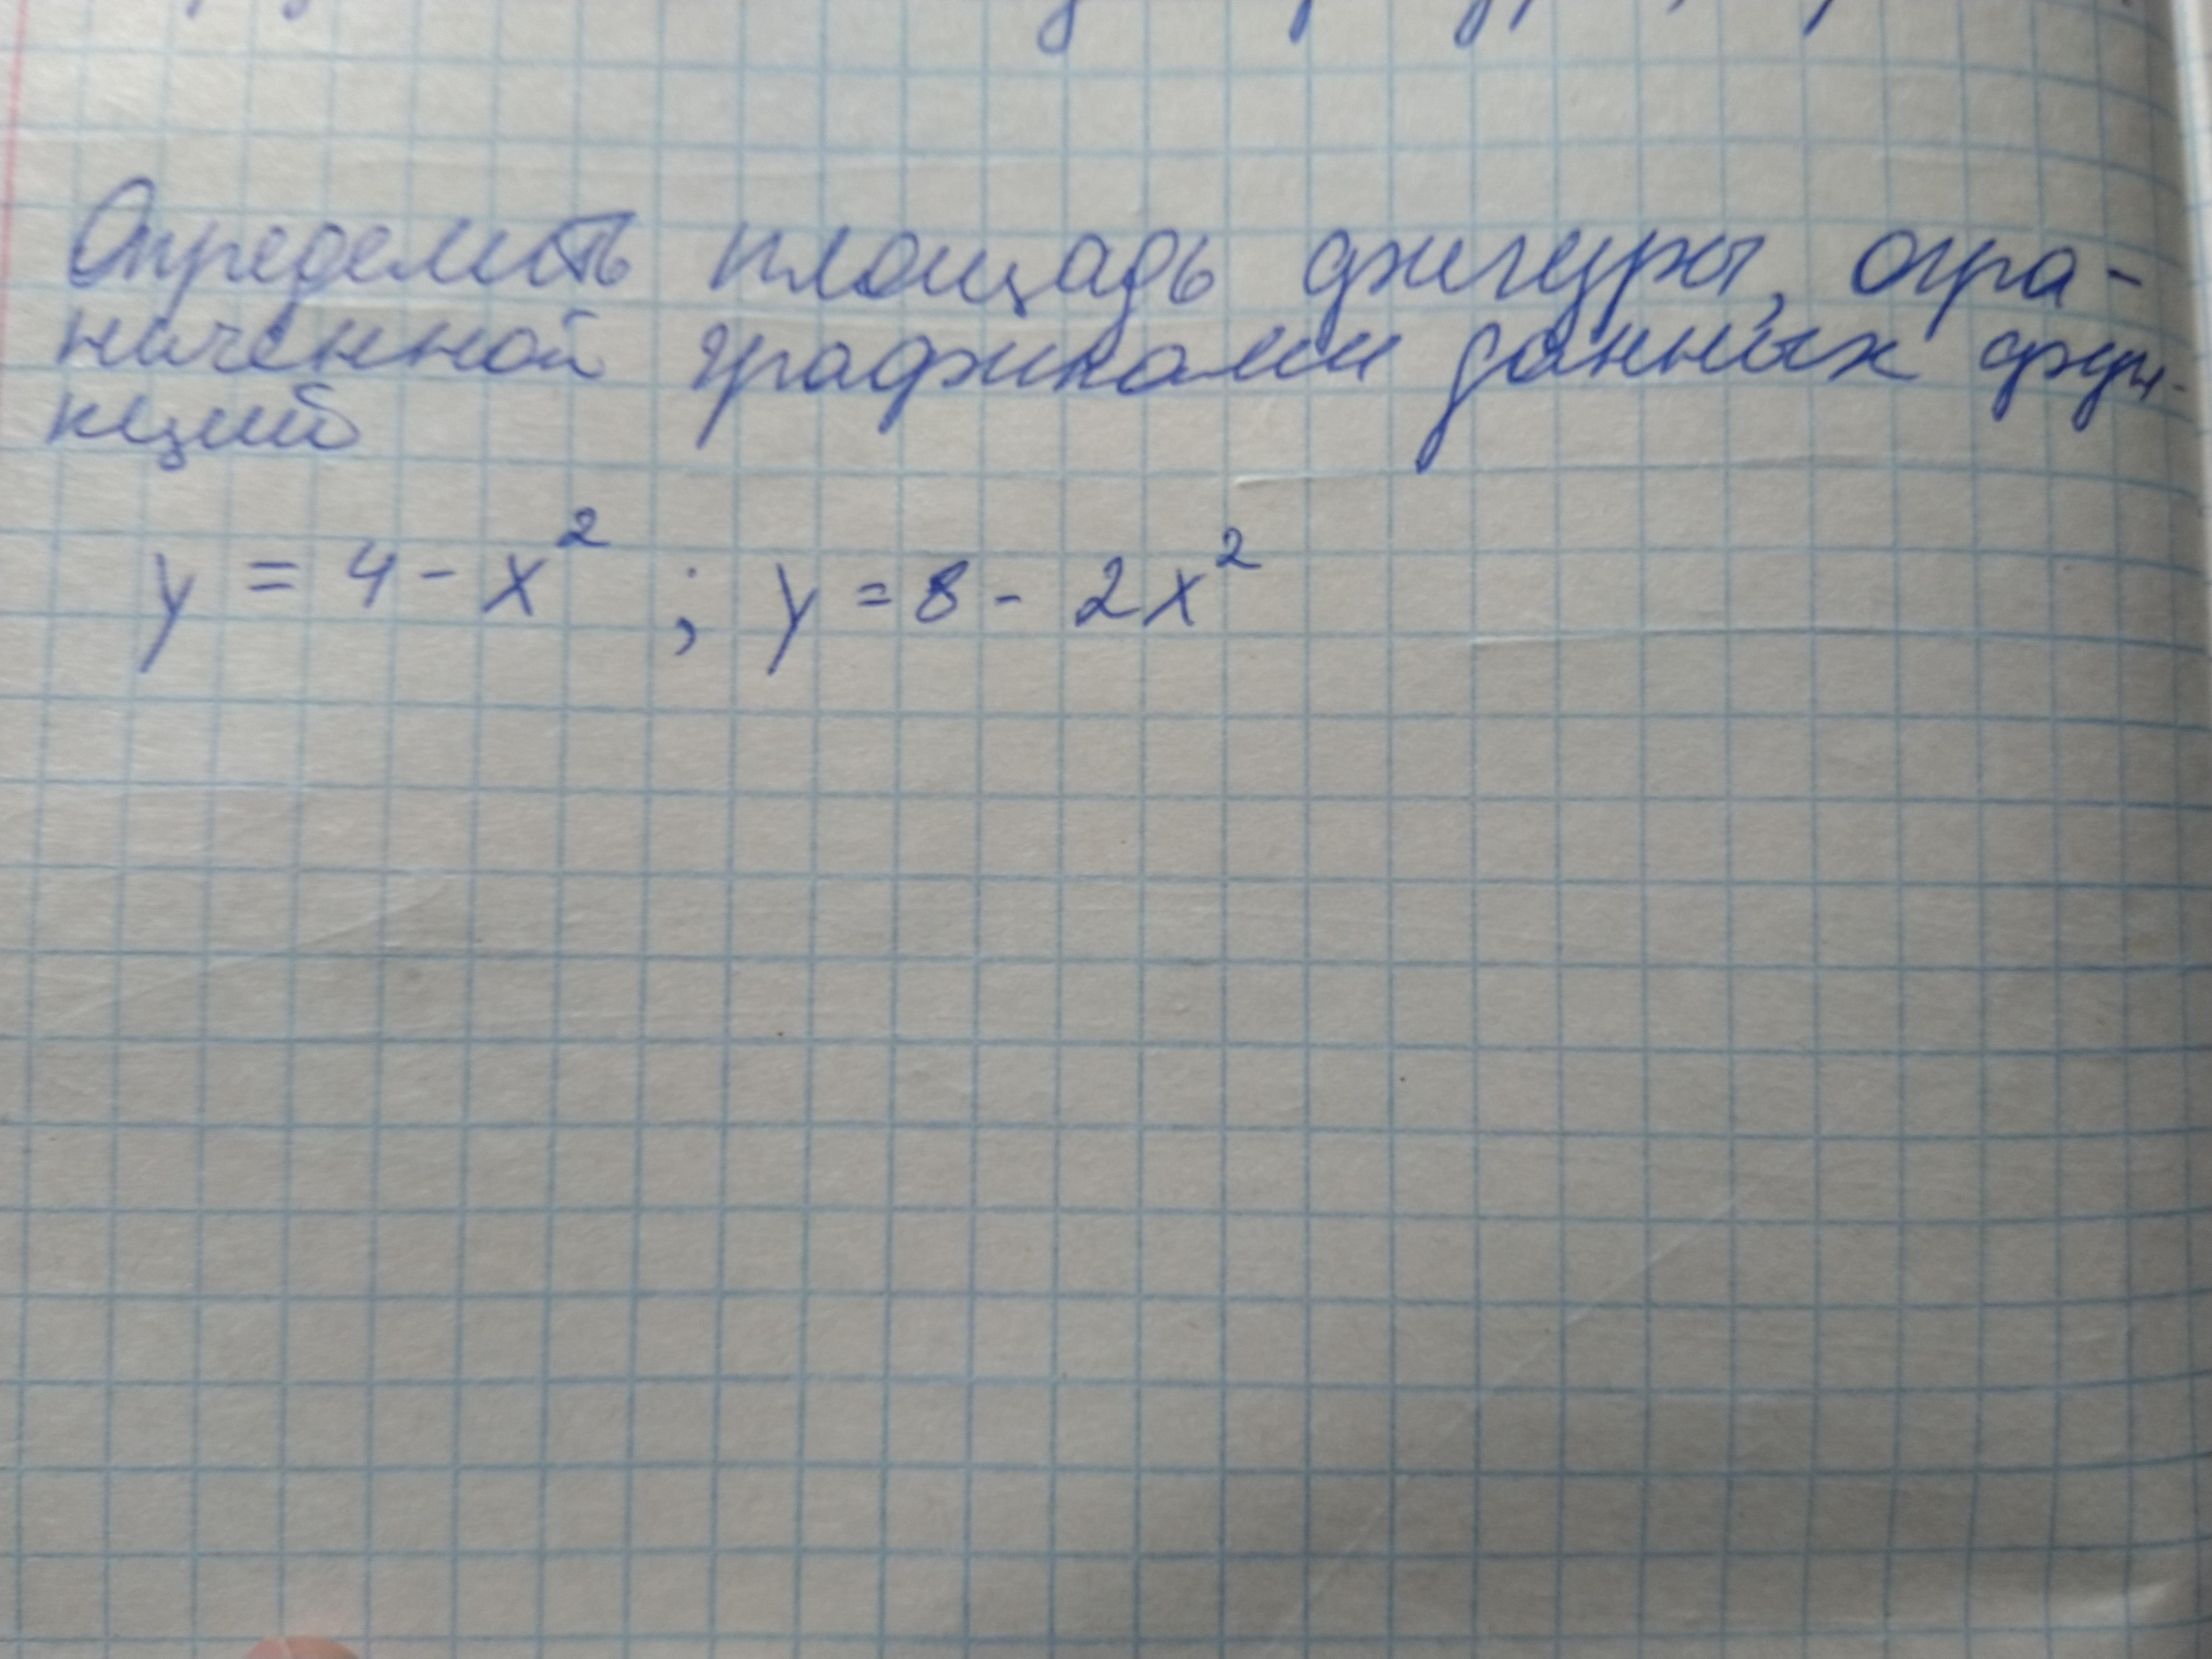 Определить площадь фигуры, огра-
ниченной графиками данных фун-
кций
y = 4 - x² ; y = 8 - 2x²